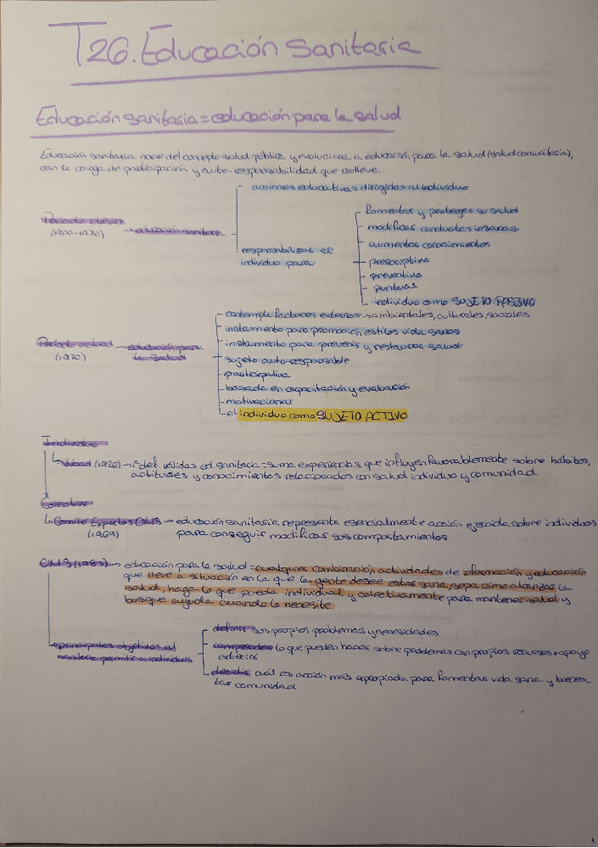 T26. Educación sanitaria
Educación sanitaria = educación para la salud
Educación sanitaria nace del concepto salud pública y evoluciona a educación para la salud (salud comunitaria),
con la carga de participación y auto-responsabilidad que conlleva
acciones educativas dirigidas al individuo
Periodo clásico
(1900-1970)
educación sanitaria
responsabilizar al
individuo para
fomentar y proteger su salud
modificar conductas insanas
aumentar conocimientos
prescriptiva
preventiva
puntual
individuo como SUJETO PASIVO
contempla factores externos → ambientales, culturales, sociales
instrumento para promoción, estilos vida sanos
instrumento para prevenir y restaurar salud
Periodo actual
(1970)
educación para
la salud
sujeto auto-responsable
participativa
basada en capacitación y evaluación
motivacional
el individuo como SUJETO ACTIVO
Individuo
Wood (1926) → 1ª def. válidas ed sanitaria = suma experiencias que influyen favorablemente sobre hábitos,
actitudes y conocimientos relacionados con salud individuo y comunidad
Comité Expertos OMS → educación sanitaria representa esencialmente acción ejercida sobre individuos
(1969)
para conseguir modificar sus comportamientos
OMS (1983) → educación para la salud = cualquier combinación actividades de información y educación
que lleve a situación en la que la gente desee estar sana, sepa cómo alcanzar la
salud, haga lo que pueda individual y colectivamente para mantener salud y
busque ayuda cuando la necesite
principales objetivos ed
sanitaria permitir a individuos
definir sus propios problemas y necesidades
comprender lo que pueden hacer sobre problemas con propios recursos + apoyo
exterior
decidir cuál es acción más apropiada para fomentar vida sana y bienes-
tar comunidad